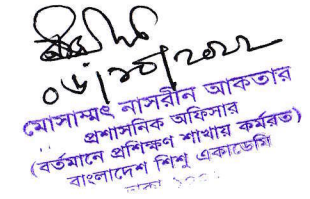 ০৬/১০/২০২২
মোসাম্মৎ নাসরীন আকতার
প্রশাসনিক অফিসার
(বর্তমানে প্রশিক্ষণ শাখায় কর্মরত)
বাংলাদেশ শিশু একাডেমি